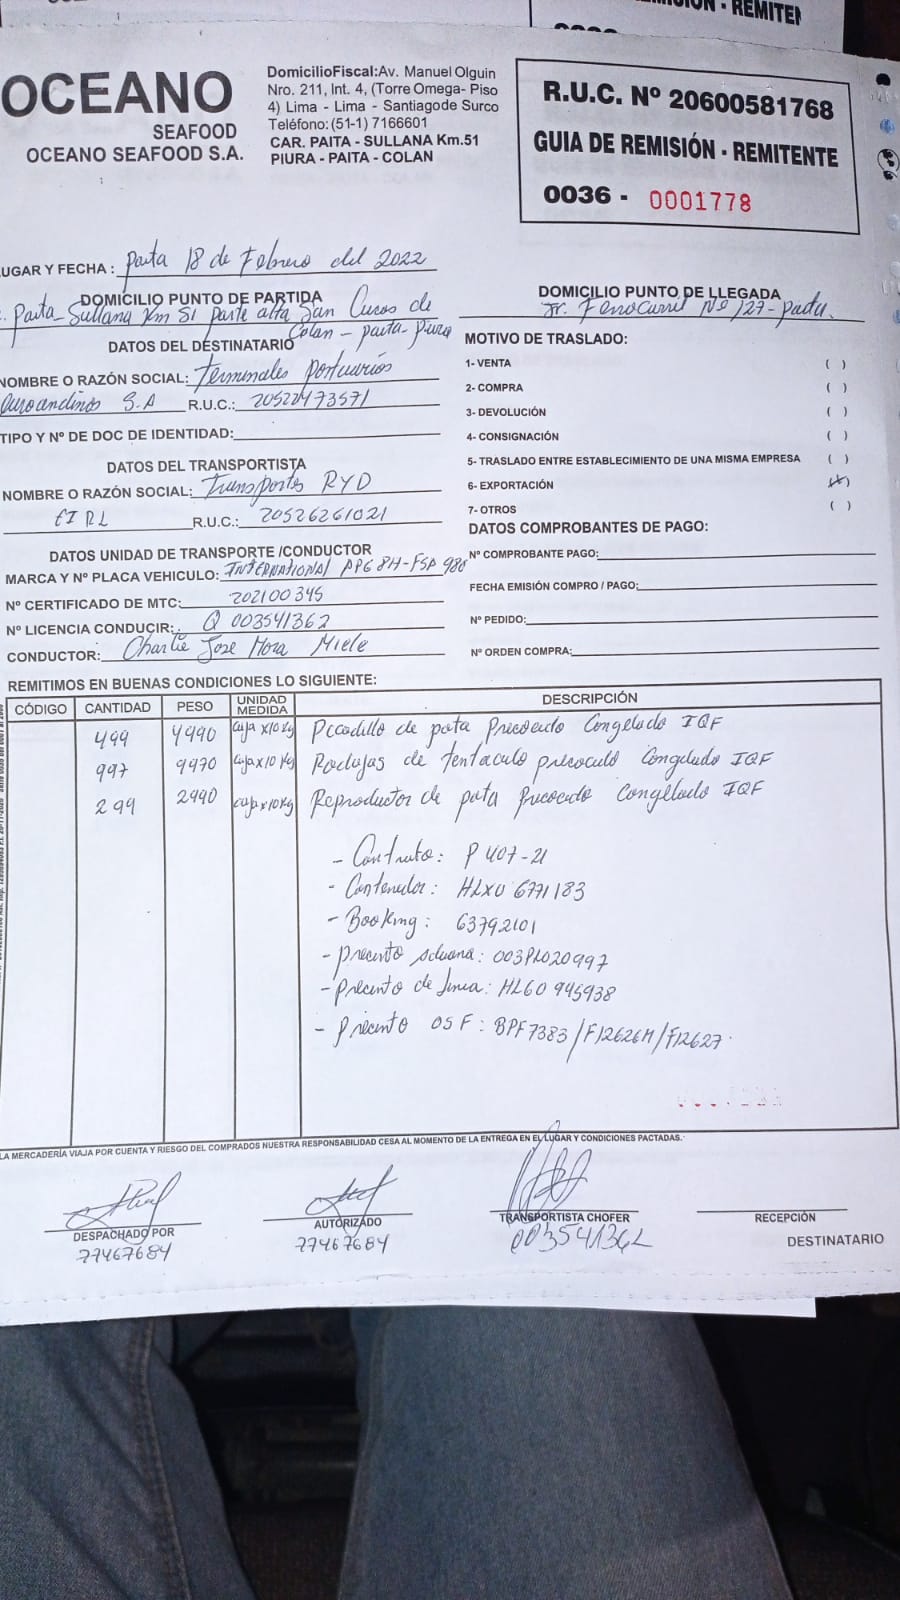 MISIÓN - REMITEN
OCEANO
SEAFOOD
OCEANO SEAFOOD S.A.
DomicilioFiscal:Av. Manuel Olguin
Nro. 211, Int. 4, (Torre Omega- Piso
4) Lima - Lima - Santiagode Surco
Teléfono:(51-1) 7166601
CAR. PAITA - SULLANA Km.51
PIURA - PAITA - COLAN
R.U.C. Nº 20600581768
GUIA DE REMISIÓN - REMITENTE
0036 - 0001778
LUGAR Y FECHA : Paita 18 de Febrero del 2022
DOMICILIO PUNTO DE PARTIDA
Paita - Sullana Km 51 parte alta San Lucas de
Colan - paita - Piura
DOMICILIO PUNTO DE LLEGADA
Jr. Ferrocarril Nº 127 - paita.
DATOS DEL DESTINATARIO
NOMBRE O RAZÓN SOCIAL: Terminales portuarios
Euroandinos S.A R.U.C.: 20522473571
TIPO Y Nº DE DOC DE IDENTIDAD:
DATOS DEL TRANSPORTISTA
NOMBRE O RAZÓN SOCIAL: Transportes RYD
EIRL R.U.C.: 20526261021
DATOS UNIDAD DE TRANSPORTE /CONDUCTOR
MARCA Y Nº PLACA VEHICULO: INTERNATIONAL 980
Nº CERTIFICADO DE MTC: 202100345
Nº LICENCIA CONDUCIR: Q 003541362
CONDUCTOR: Charlie Jose Mora Miele
MOTIVO DE TRASLADO:
1- VENTA ( )
2- COMPRA ( )
3- DEVOLUCIÓN ( )
4- CONSIGNACIÓN ( )
5- TRASLADO ENTRE ESTABLECIMIENTO DE UNA MISMA EMPRESA ( )
6- EXPORTACIÓN (X)
7- OTROS ( )
DATOS COMPROBANTES DE PAGO:
Nº COMPROBANTE PAGO:
FECHA EMISIÓN COMPRO / PAGO:
Nº PEDIDO:
Nº ORDEN COMPRA:
REMITIMOS EN BUENAS CONDICIONES LO SIGUIENTE:
CÓDIGO CANTIDAD PESO UNIDAD MEDIDA DESCRIPCIÓN
499 4990 Caja x10 Kg Picadillo de pata Precocido Congelado IQF
997 9970 Caja x 10 Kg Rodajas de tentaculo precocido Congelado IQF
299 2990 Caja x10Kg Reproductor de pata Precocido Congelado IQF
- Contrato: P 407-21
- Contenedor: HLXU 6771183
- Booking: 63792101
- Precinto Aduana: 003PL020997
- Precinto de linea: HLG0 945938
- Precinto OSF: BPF7383/F12626M/F12627.
LA MERCADERÍA VIAJA POR CUENTA Y RIESGO DEL COMPRADOS NUESTRA RESPONSABILIDAD CESA AL MOMENTO DE LA ENTREGA EN EL LUGAR Y CONDICIONES PACTADAS.
DESPACHADO POR
77467684
AUTORIZADO
77467684
TRANSPORTISTA CHOFER
003541362
RECEPCIÓN
DESTINATARIO